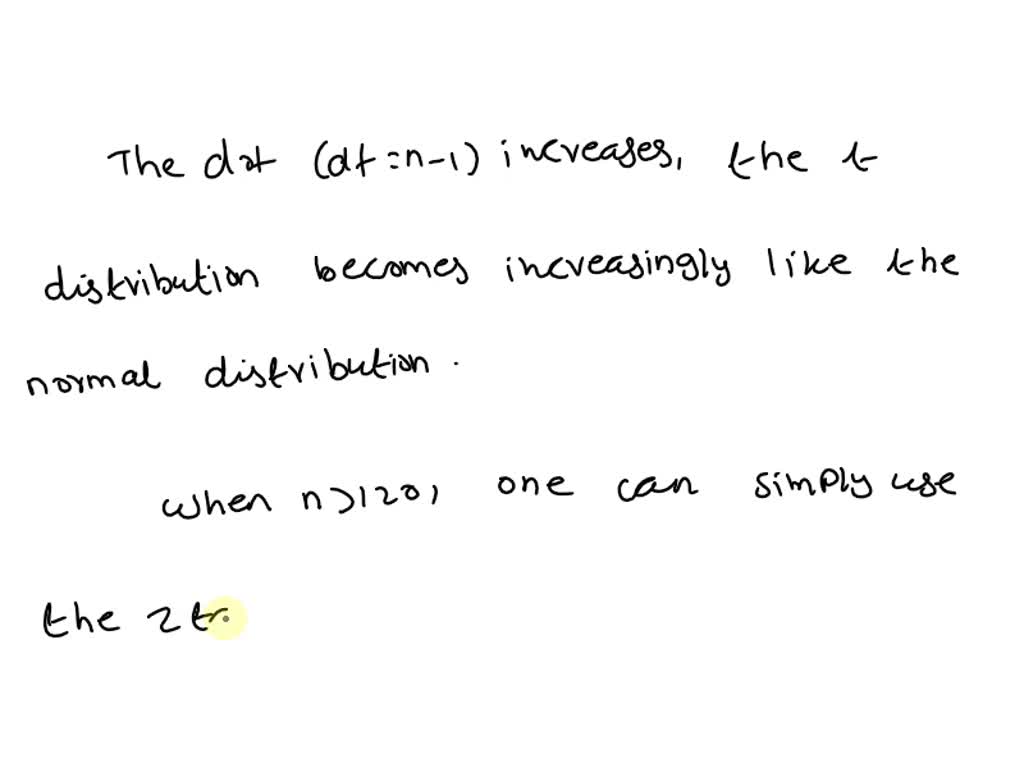 The dof (df = n-1) increases, the t
distribution becomes increasingly like the
normal distribution.
when n>120, one can simply use
the z t